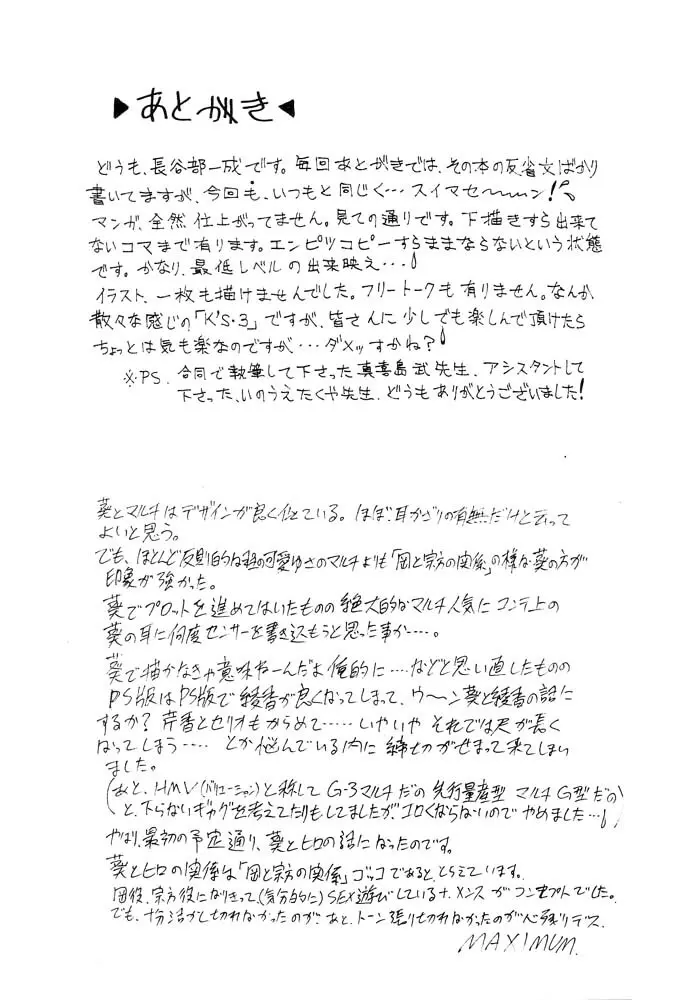 ▶あとがき◀
どうも、長谷部一成です。毎回あとがきでは、その本の反省文ばかり
書いてますが、今回も、いつもと同じく…スイマセ〜〜ン!
マンガ、全然仕上がってません。見ての通りです。下描きすら出来て
ないコマまで有ります。エンピツコピーすらままならないという状態
です。かなり、最低レベルの出来映え…!
イラスト、一枚も描けませんでした。フリートークも有りません。なんか、
散々な感じの「K'S・3」ですが、皆さんに少しでも楽しんで頂けたら
ちょっとは気も楽なのですが…ダメっすかね?!
※PS. 合同で執筆して下さった真喜島武先生、アシスタントして
下さった、いのうえたくや先生、どうもありがとうございました!
葵とマルチはデザインが良く似ている。ほぼ、耳かざりの有無だけと云って
よいと思う。
でも、ほとんど反則的な可愛ゆさのマルチよりも「岡と宗方の関係」の様な葵の方が
印象が強かった。
葵でプロットを進めてはいたものの絶大的なマルチ人気にコンテ上の
葵の耳に何度センサーを書き込もうと思った事か…。
葵で描かなきゃ意味ねーんだよ俺的に…などと思い直したものの
PS版はPS版で綾香が良くなってしまって、ウ〜ン葵と綾香の話に
するか?芹香とセリオもからめて……いやいやそれでは尺が長く
なってしまう……とか悩んでいる内に締切がせまって来てしまい
ました。
(あと、HMV(バリエーション)と称してG-3マルチだの先行量産型マルチG型だの
と、下らないギャグを考えてたりもしてましたがゴロくならないのでやめました…!)
やはり、最初の予定通り、葵とヒロの話になったのです。
葵とヒロの関係は「岡と宗方の関係」ゴッコであると、とらえています。
岡役、宗方役になりきって(気分的に)SEX遊びしているナ、メンスがコンセプトでした。
でも、十分活かし切れなかったのが、あと、トーン張り切れなかったのが心残りデス。
MAXIMUM.